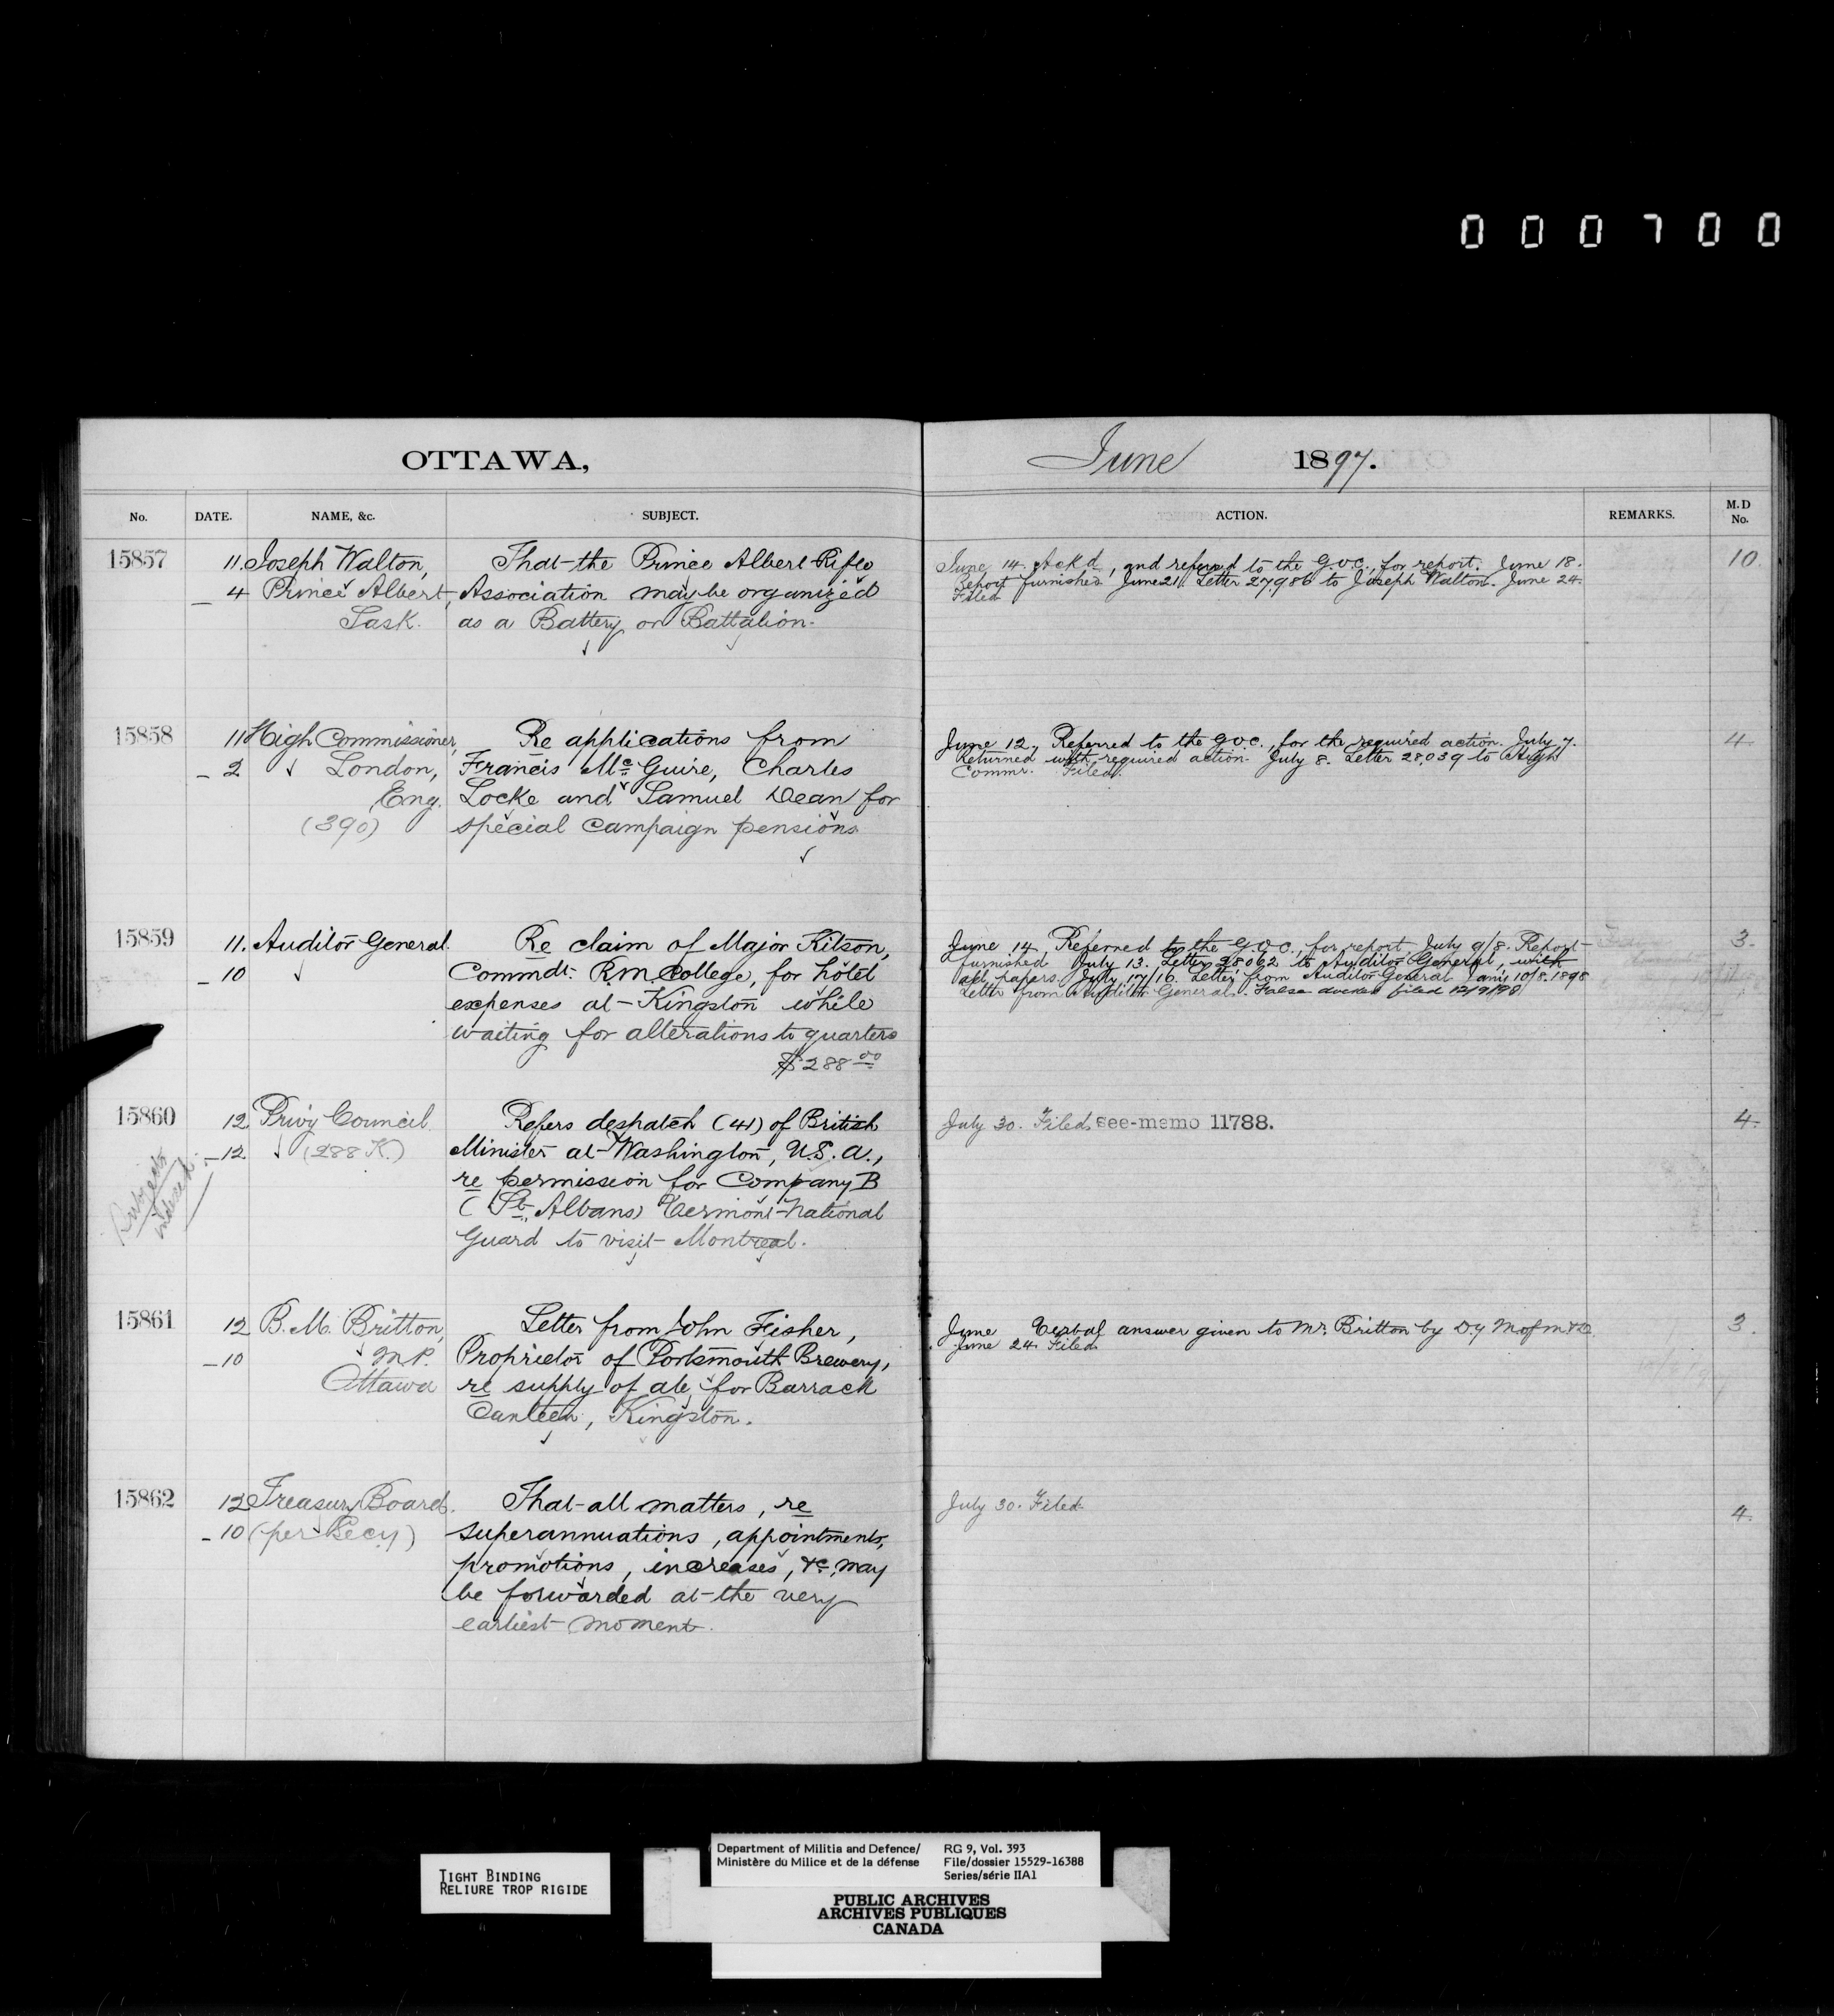 000700
OTTAWA,
June 1897.
No. DATE. NAME, &c. SUBJECT.
ACTION. REMARKS. M.D No.
15857 11. Joseph Walton, That the Prince Albert Rifle
– 4 Prince Albert, Association may be organized
Sask. as a Battery or Battalion.
June 14. Ackd, and referred to the G.O.C., for report. June 18. 10.
Report furnished June 21. Letter 27,986 to Joseph Walton. June 24.
Filed
15858 11 High Commissioner, Re applications from
– 2 London, Francis Mc Guire, Charles
Eng. Locke and Samuel Dean for
(390) special campaign pensions
June 12. Referred to the G.O.C., for the required action. July 7. 4.
Returned with required action. July 8. Letter 28,039 to High
Commr. Filed.
15859 11. Auditor General. Re claim of Major Kitson,
– 10 Commdt. R.M. College, for hotel
expenses at Kingston while
waiting for alterations to quarters
$288.00
June 14 Referred to the G.O.C., for report July 9/8. Report 3.
furnished July 13. Letter 28062 to Auditor General, with
all papers. July 17/16. Letter from Auditor General 10/8.1898
Letter from Auditor General. False docket filed 12/9/98
15860 12. Privy Council. Refers despatch (41) of British
– 12. (288 K.) Minister at Washington, U.S.A.,
re permission for Company B
(St. Albans) Vermont National
Guard to visit Montreal.
Subjects
indexed.
July 30. Filed. see memo 11788. 4.
15861 12 B. M. Britton, Letter from John Fisher,
– 10 M.P. Proprietor of Portsmouth Brewery,
Ottawa re supply of ale for Barrack
Canteen, Kingston.
June Verbal answer given to Mr. Britton by Dy M of M & D. 3
June 24. Filed.
15862 12 Treasury Board. That all matters, re
– 10 (per Secy) superannuations, appointments,
promotions, increases, &c, may
be forwarded at the very
earliest moment.
July 30. Filed 4.
TIGHT BINDING
RELIURE TROP RIGIDE
Department of Militia and Defence/ RG 9, Vol. 393
Ministère du Milice et de la défense File/dossier 15529-16388
Series/série IIA1
PUBLIC ARCHIVES
ARCHIVES PUBLIQUES
CANADA